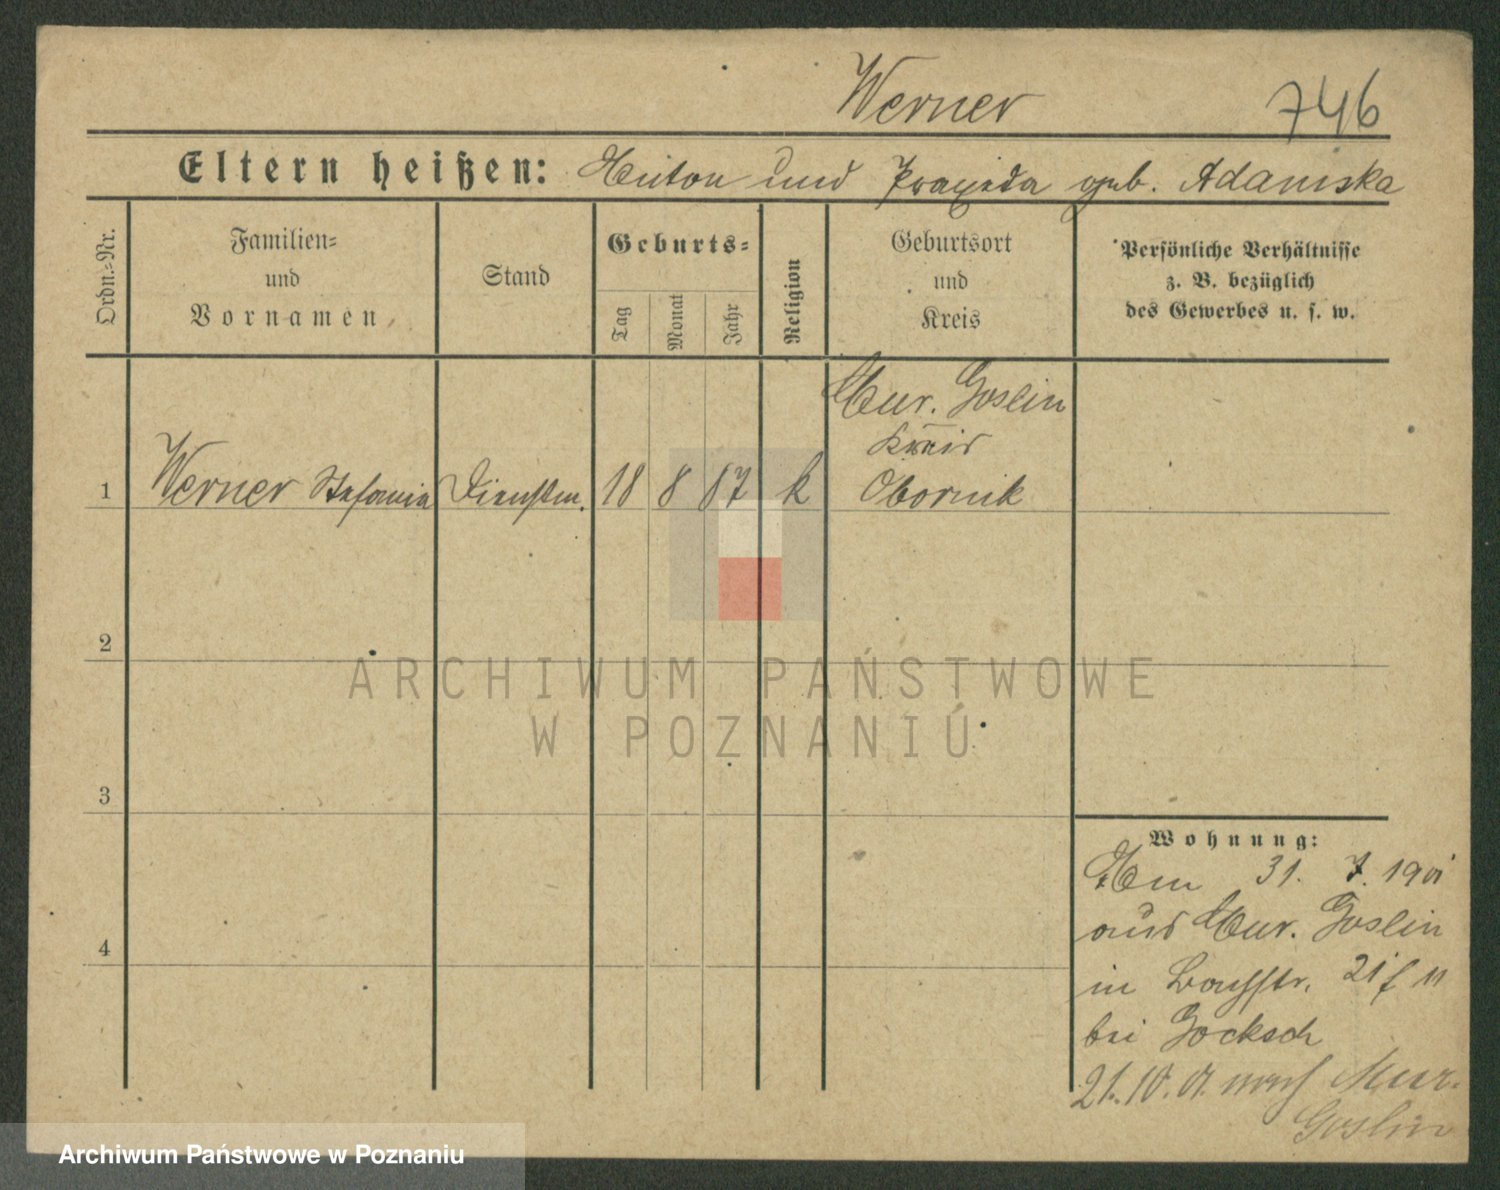 Werner 746
Eltern heißen: Anton und Praxeda geb. Adamska
Ordn.-Nr.
Familien-
und
Vornamen
Stand
Geburts-
Tag
Monat
Jahr
Religion
Geburtsort
und
Kreis
Persönliche Verhältnisse
z. B. bezüglich
des Gewerbes u. s. w.
1 Werner Stefania Dienstm. 18 8 87 k
Mur. Goslin
Kreis
Obornik
2
3
4
Wohnung:
Am 31. 7. 1901
aus Mur. Goslin
in
bei Gocksch
21. 10. 01. nach Mur.
Goslin
ARCHIWUM PAŃSTWOWE
W POZNANIU
Archiwum Państwowe w Poznaniu